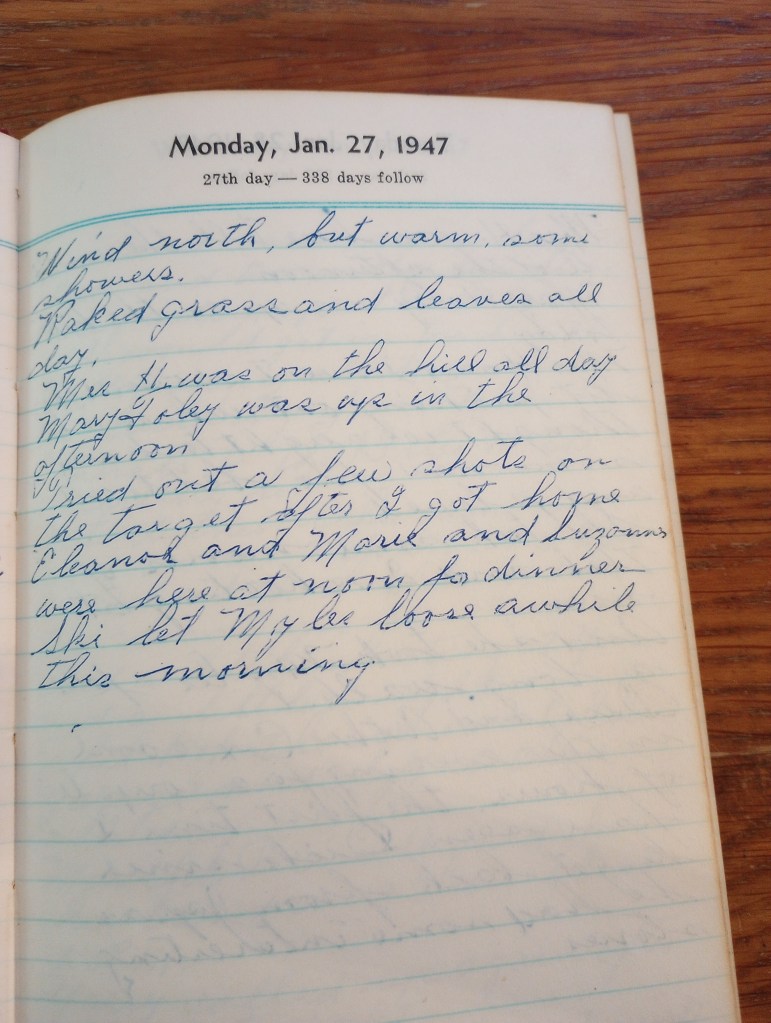 Monday, Jan. 27, 1947
27th day — 338 days follow
Wind north, but warm, some
showers.
Raked grass and leaves all
day.
Mrs H. was on the hill all day
Mary Foley was up in the
afternoon
Tried out a few shots on
the target after I got home
Eleanor and Marie and Suzanne
were here at noon for dinner
Ski let Myles loose awhile
this morning